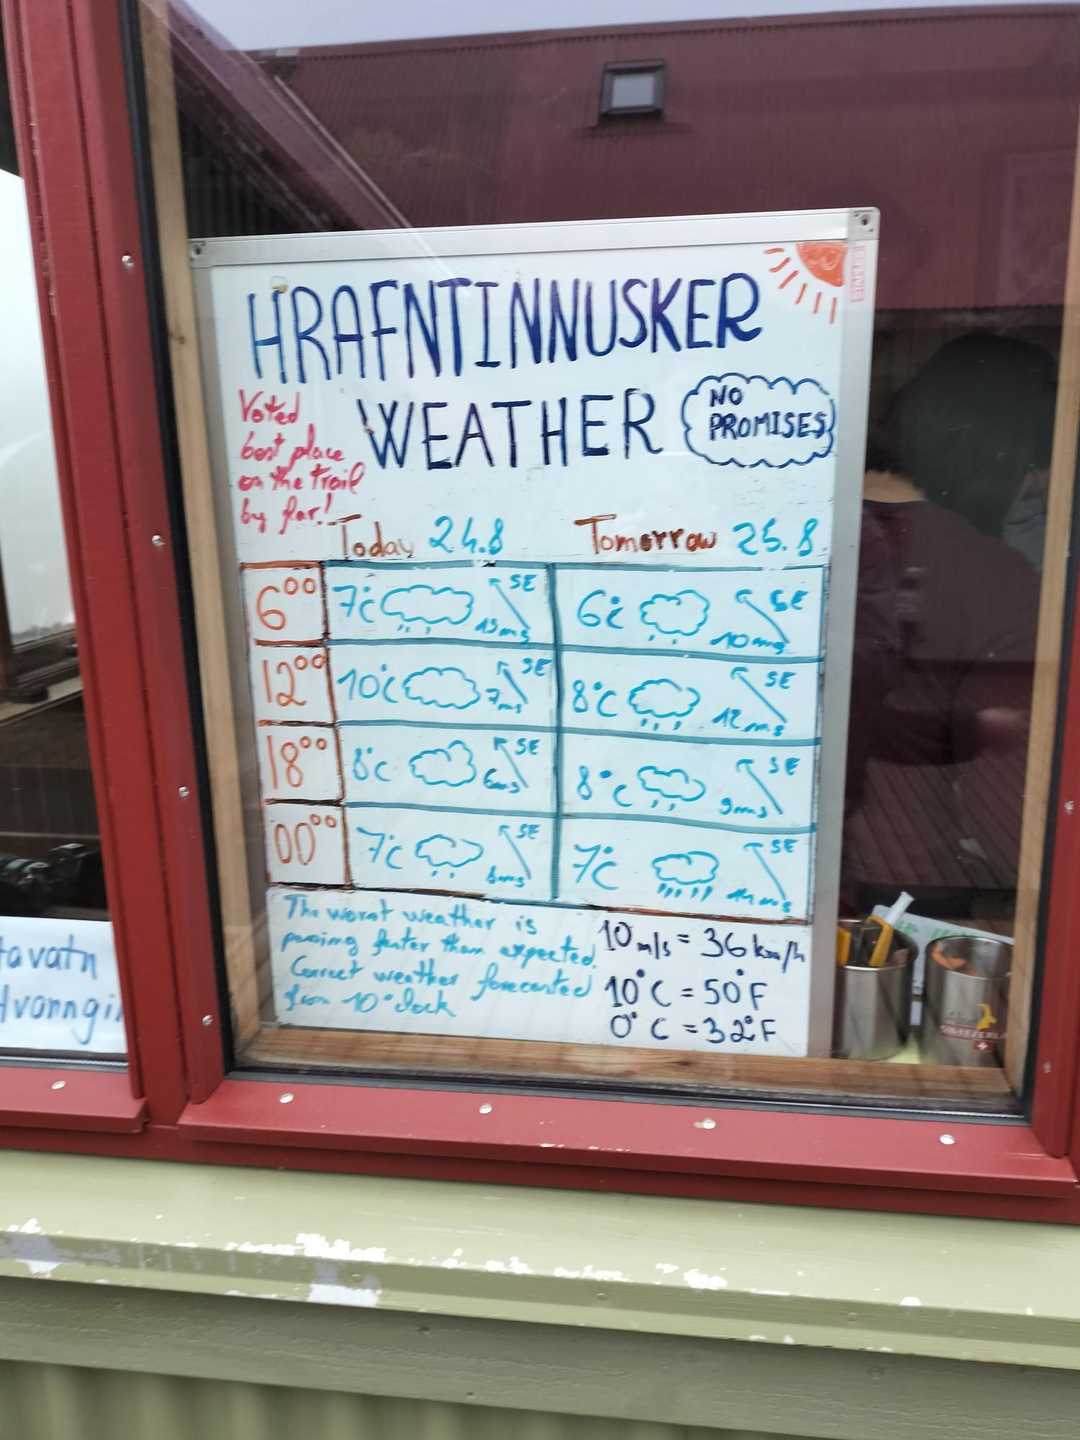 HRAFNTINNUSKER
WEATHER
NO
PROMISES
Voted
best place
on the trail
by far!
Today 24.8 Tomorrow 25.8
6°° 7°C SE 13ms 6°C SE 10ms
12°° 10°C SE 7ms 8°C SE 12ms
18°° 8°C SE 6ms 8°C SE 9ms
00°° 7°C SE 7°C SE 14ms
The worst weather is
passing faster than expected.
Correct weather forecasted
from 10 o'clock
10 m/s = 36 km/h
10°C = 50°F
0°C = 32°F
STAPLES